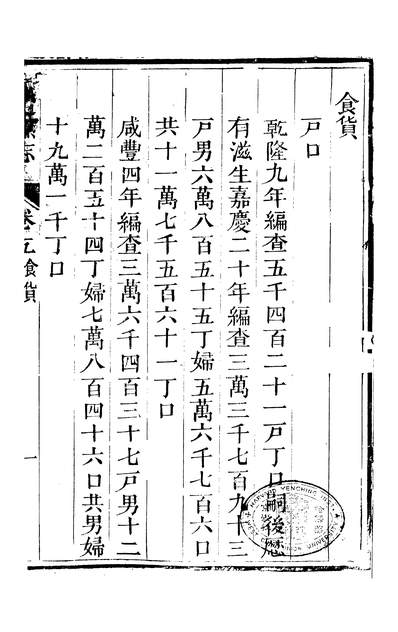 食貨
戶口
乾隆九年編查五千四百二十一戶丁口嗣後
有滋生嘉慶二十年編查三萬三千七百九十三
戶男六萬八百五十五丁婦五萬六千七百六口
共十一萬七千五百六十一丁口
咸豐四年編查三萬六千四百三十七戶男十二
萬二百五十四丁婦七萬八百四十六口共男婦
十九萬一千丁口
志 卷五食貨 一
YENCHING
UNIVERSITY